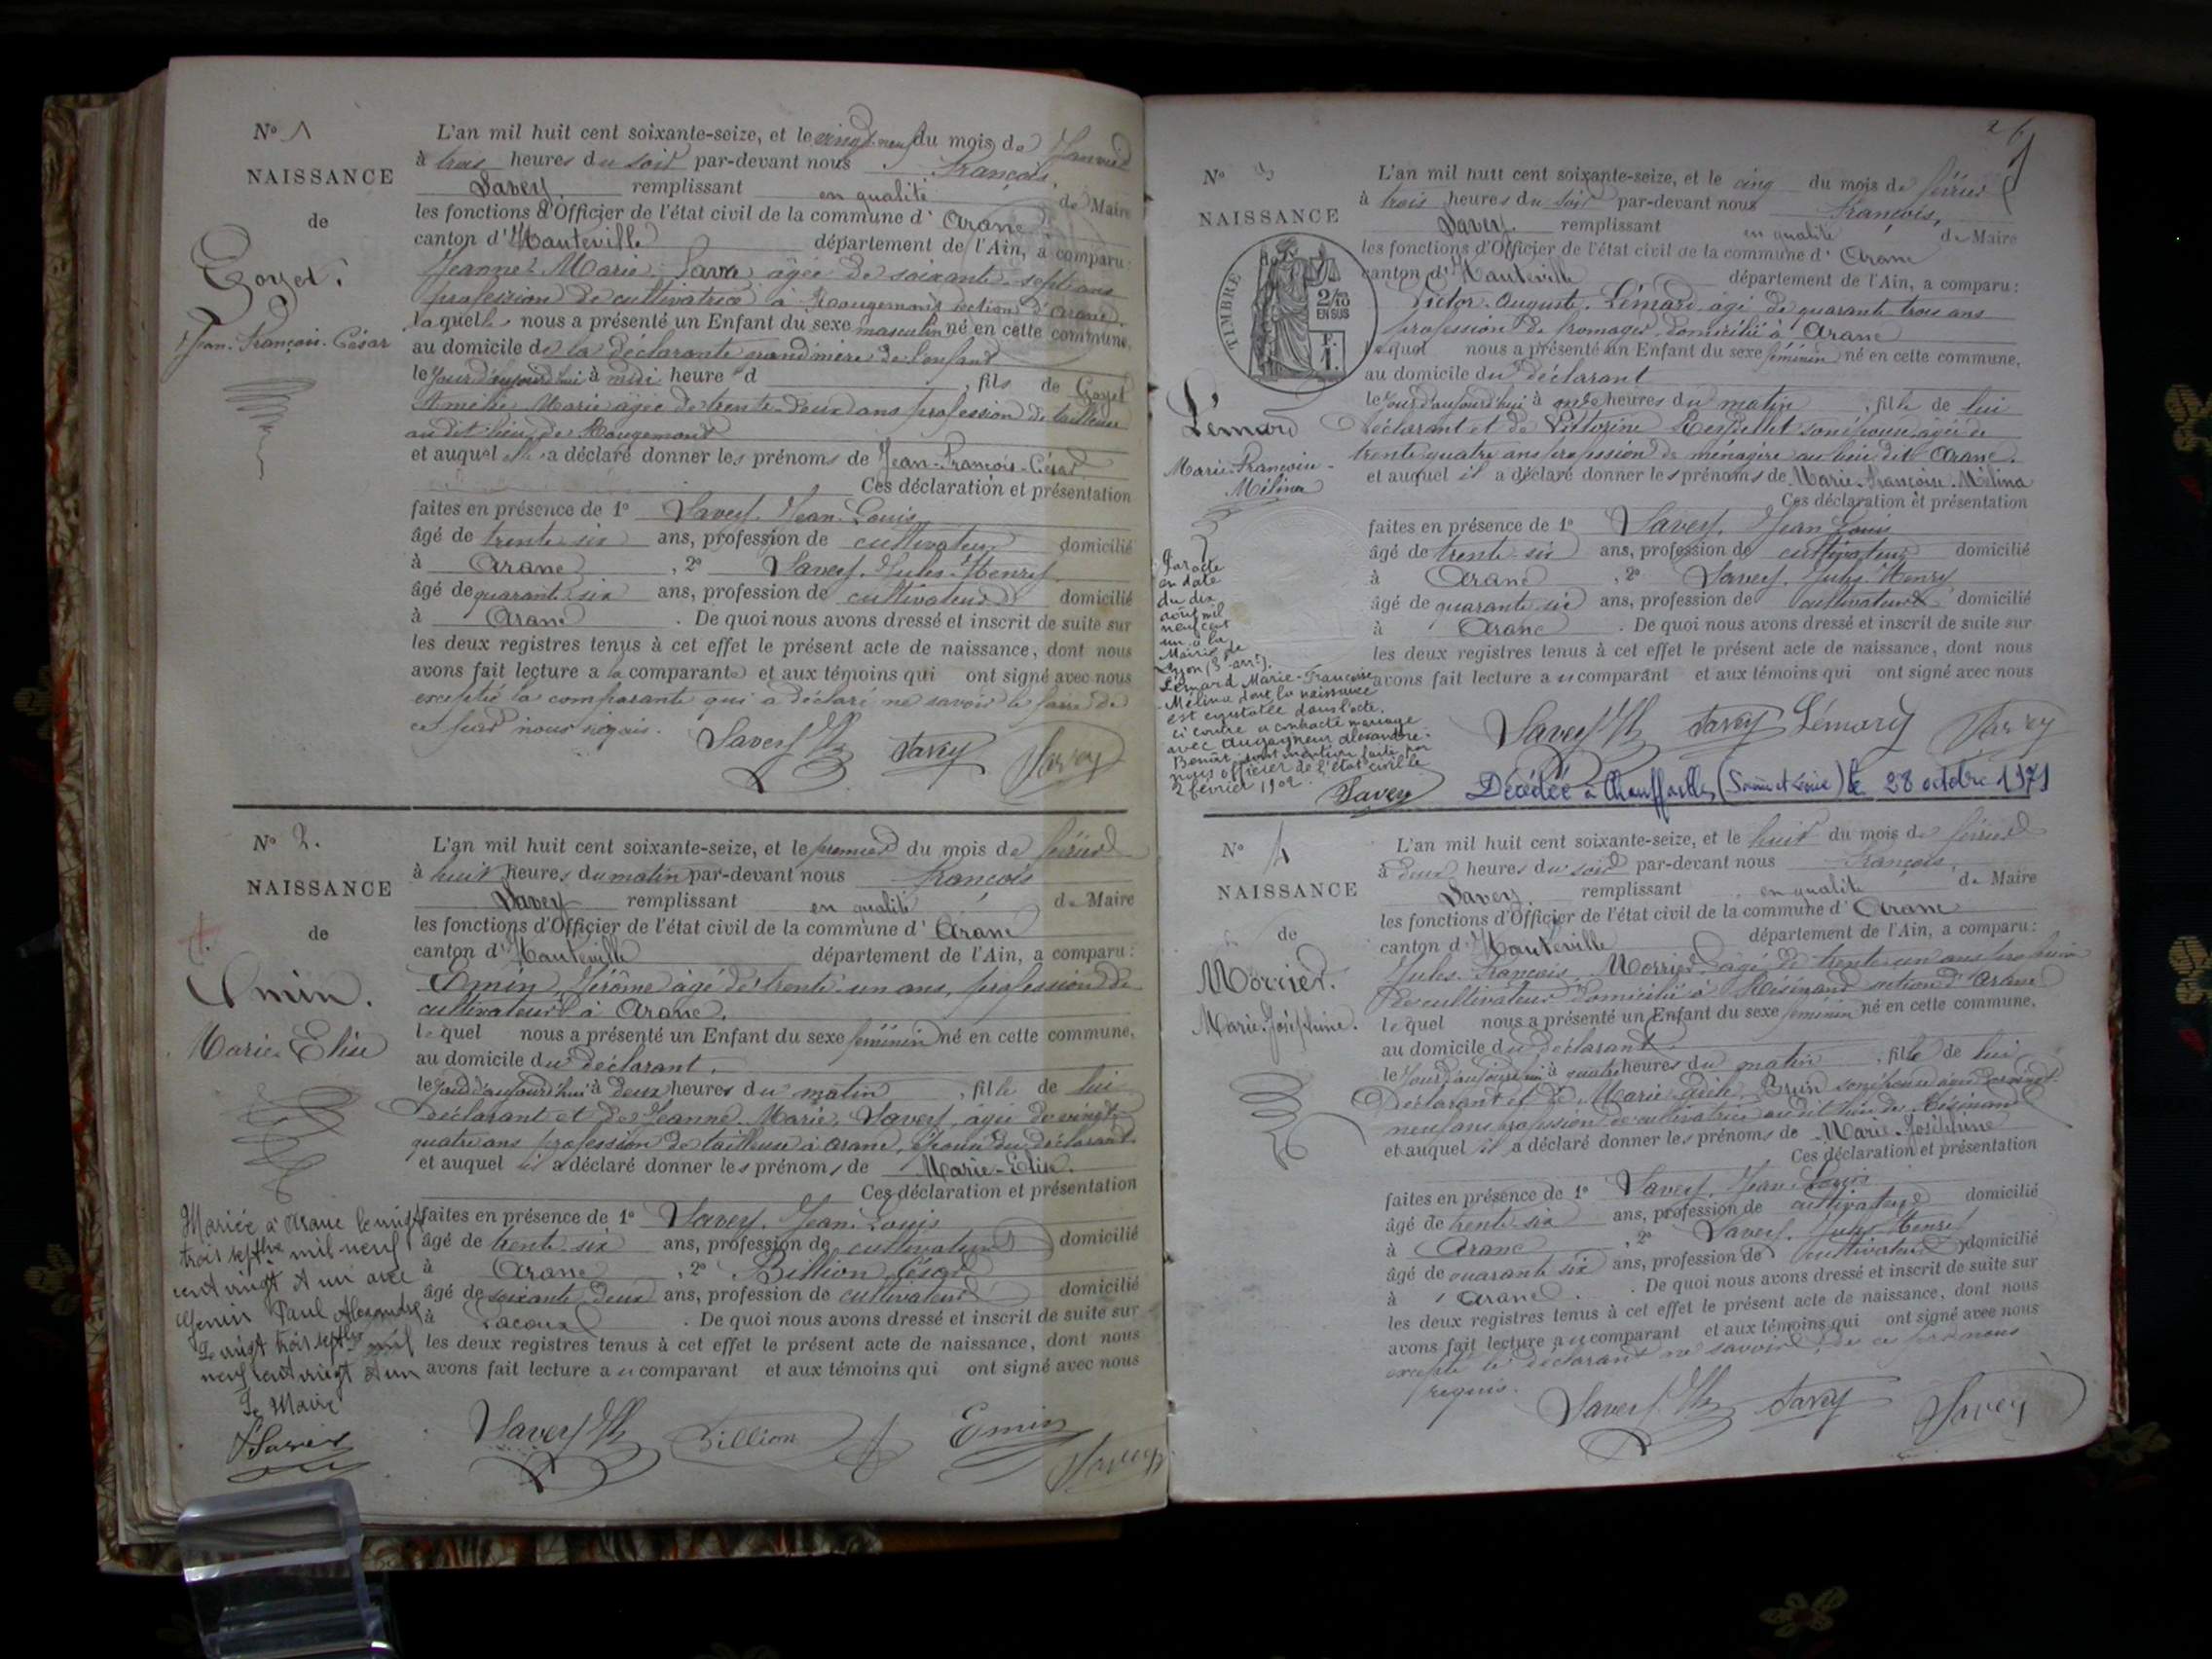 N° 1
NAISSANCE
de
Goyet
Jean-François-César
L'an mil huit cent soixante-seize, et le vingt-neuf du mois de Janvier
à trois heures du soir par-devant nous François
Savey remplissant en qualité de Maire
les fonctions d'Officier de l'état civil de la commune d'Aranc
canton d'Hauteville département de l'Ain, a comparu :
Jeanne Marie âgée de soixante-sept ans
profession de cultivatrice à Rougemont section d'Aranc.
laquelle nous a présenté un Enfant du sexe masculin né en cette commune,
au domicile de la déclarante grand'mère de l'enfant
le jour d'aujourd'hui à midi heure d , fils de Goyet
Marie âgée de trente-deux ans profession de tailleuse
audit lieu de Rougemont
et auquel elle a déclaré donner les prénoms de Jean-François-César
Ces déclaration et présentation
faites en présence de 1° Savey Jean-Louis
âgé de trente six ans, profession de cultivateur domicilié
à Aranc , 2° Savey Jules-Henry
âgé de quarante six ans, profession de cultivateur domicilié
à Aranc . De quoi nous avons dressé et inscrit de suite sur
les deux registres tenus à cet effet le présent acte de naissance, dont nous
avons fait lecture a la comparante et aux témoins qui ont signé avec nous
excepté la comparante qui a déclaré ne savoir le faire de
ce fait nous requis.
Savey Jh Savey Savey
N° 2.
NAISSANCE
de
Emin.
Marie-Elise
L'an mil huit cent soixante-seize, et le premier du mois de février
à huit heures du matin par-devant nous François
Savey remplissant en qualité de Maire
les fonctions d'Officier de l'état civil de la commune d'Aranc
canton d'Hauteville département de l'Ain, a comparu :
Emin, Jérôme âgé de trente-un ans, profession de
cultivateur à Aranc.
lequel nous a présenté un Enfant du sexe féminin né en cette commune,
au domicile du déclarant.
le jour d'aujourd'hui à deux heures du matin , fille de lui
déclarant et de Jeanne-Marie Savey, agée de vingt-
quatre ans profession de tailleuse à Aranc, épouse du déclarant
et auquel il a déclaré donner les prénoms de Marie-Elise.
Ces déclaration et présentation
faites en présence de 1° Savey Jean-Louis
âgé de trente six ans, profession de cultivateur domicilié
à Aranc , 2° Billion César
âgé de soixante-deux ans, profession de cultivateur domicilié
à Lacoux . De quoi nous avons dressé et inscrit de suite sur
les deux registres tenus à cet effet le présent acte de naissance, dont nous
avons fait lecture au comparant et aux témoins qui ont signé avec nous
Mariée à Aranc le vingt
trois septbre mil neuf
cent vingt et un avec
Paul Alexandre
Le vingt trois septbre mil
neuf cent vingt et un
Le Maire
Savey
Savey Jh Billion Emin Savey
N° 3
NAISSANCE
TIMBRE
2/10
EN SUS
Lémard
Marie-Françoise-
Mélina
L'an mil huit cent soixante-seize, et le cinq du mois de février
à trois heures du soir par-devant nous François,
Savey remplissant en qualité de Maire
les fonctions d'Officier de l'état civil de la commune d'Aranc
canton d'Hauteville département de l'Ain, a comparu :
Victor-Auguste Lémard agé de quarante trois ans
profession de fromager domicilié à Aranc
lequel nous a présenté un Enfant du sexe féminin né en cette commune,
au domicile du déclarant
le jour d'aujourd'hui à onze heures du matin , fille de lui
déclarant et de Victorine son épouse agée de
trente quatre ans profession de ménagère au lieu dit Aranc.
et auquel il a déclaré donner les prénoms de Marie-Françoise-Mélina
Ces déclaration et présentation
faites en présence de 1° Savey, Jean Louis
âgé de trente-six ans, profession de cultivateur domicilié
à Aranc , 2° Savey, Jules-Henry
âgé de quarante six ans, profession de cultivateur domicilié
à Aranc . De quoi nous avons dressé et inscrit de suite sur
les deux registres tenus à cet effet le présent acte de naissance, dont nous
avons fait lecture au comparant et aux témoins qui ont signé avec nous
Par acte
en date
du dix
août mil
neuf cent
un à la
Mairie de
Lyon (3e arrt).
Lémard Marie-Françoise
-Mélina dont la naissance
est constatée dans l'acte
ci contre a contracté mariage
avec Augagneur Alexandre-
Benoît, mention faite par
nous officier de l'état civil le
2 février 1902.
Savey
Savey Jh Savey Lémard Savey
Décédée à Chauffailles (Saône et Loire) le 28 octobre 1971
N° 4
NAISSANCE
de
Morrier.
Marie-Joséphine.
L'an mil huit cent soixante-seize, et le huit du mois de février
à deux heures du soir par-devant nous François,
Savey remplissant en qualité de Maire
les fonctions d'Officier de l'état civil de la commune d'Aranc
canton d'Hauteville département de l'Ain, a comparu :
Jules-François Morrier âgé de trente-un ans profession
de cultivateur domicilié à Résinand section d'Aranc
lequel nous a présenté un Enfant du sexe féminin né en cette commune,
au domicile du déclarant
le jour d'aujourd'hui à quatre heures du matin , fille de lui
Déclarant et de Marie son épouse âgée de vingt-
neuf ans profession de cultivatrice audit lieu de Résinand
et auquel il a déclaré donner les prénoms de Marie-Joséphine
Ces déclaration et présentation
faites en présence de 1° Savey, Jean-Louis
âgé de trente-six ans, profession de cultivateur domicilié
à Aranc , 2° Savey, Jules Henri
âgé de quarante six ans, profession de cultivateur domicilié
à Aranc . De quoi nous avons dressé et inscrit de suite sur
les deux registres tenus à cet effet le présent acte de naissance, dont nous
avons fait lecture au comparant et aux témoins qui ont signé avec nous
excepté le déclarant ne savoir de ce fait nous
requis.
Savey Jh Savey Savey